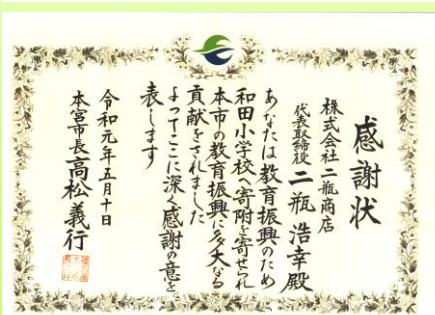 感謝状
株式会社二瓶商店
代表取締役 二瓶浩幸殿
あなたは教育振興のため
和田小学校へ寄附を寄せられ
本市の教育振興に多大なる
貢献をされました
よってここに深く感謝の意を
表します
令和元年五月十日
本宮市長 高松義行